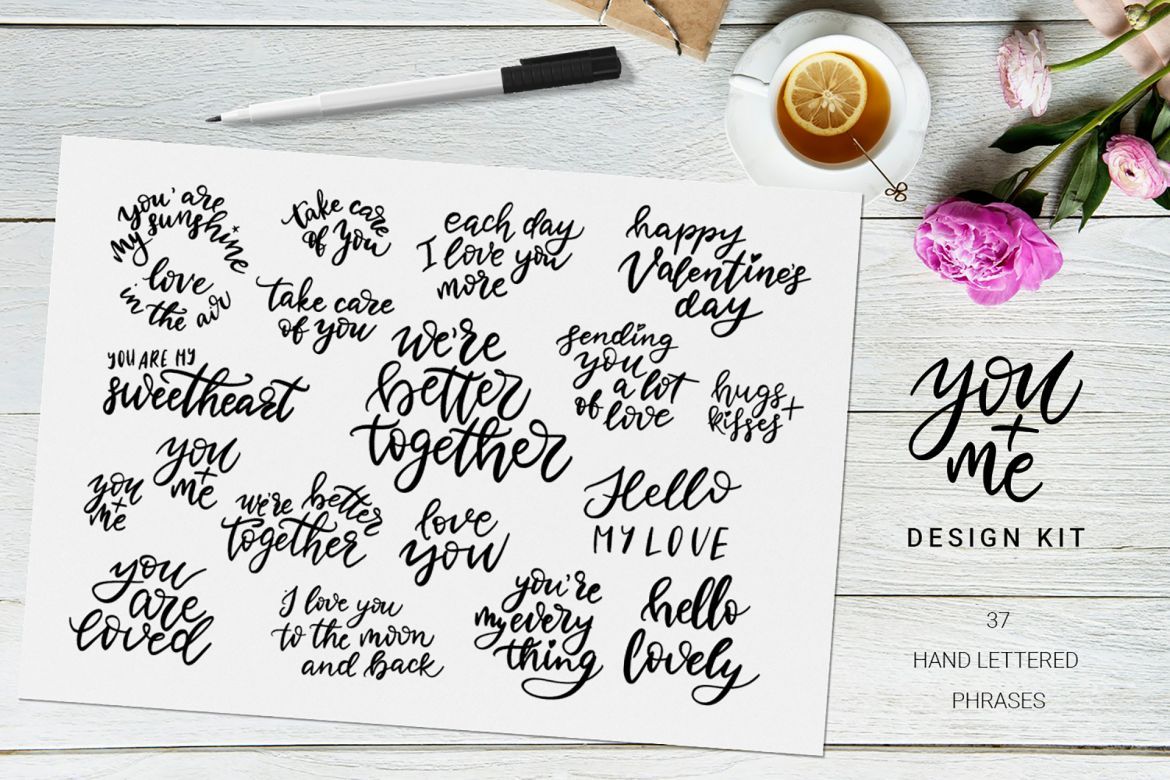 you' are
my sunshine
love
in the air
take care
of you
take care
of you
each day
I love you
more
happy
Valentine's
day
YOU ARE MY
sweetheart
we're
better
together
sending
you
a lot
of love
hugs +
kisses
you
+
me
you
+
me
we're better
together
love
you
Hello
MY LOVE
you
are
loved
I love you
to the moon
and back
you're
my every
thing
hello
lovely
you
+
me
DESIGN KIT
37
HAND LETTERED
PHRASES